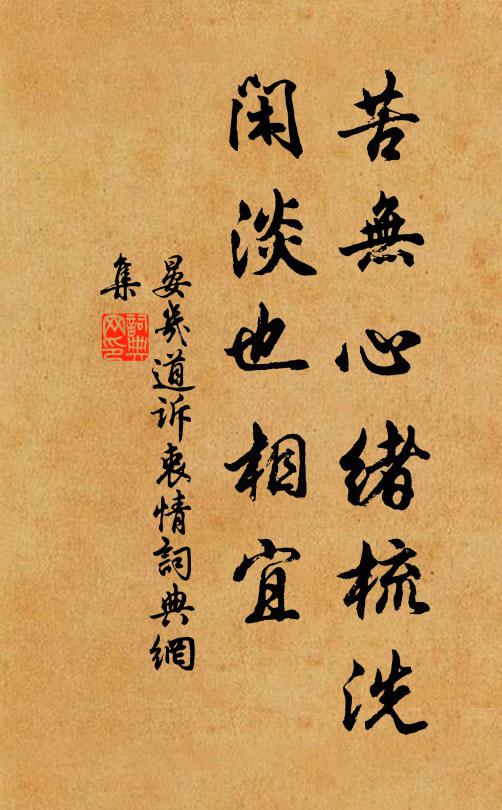 苦無心緒梳洗
閑淡也相宜
晏幾道訴衷情詞典網
集
詞典網印